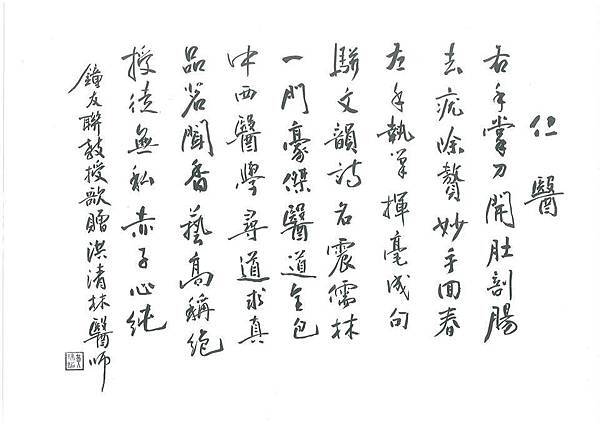 仁醫
右手掌刀開肚剖腸
去疣除贅妙手回春
左手執筆揮毫成句
駢文韻詩名震儒林
一門豪傑醫道全包
中西醫學尋道求真
品茗聞香藝高稱絕
授徒無私赤子心純
鐘友聯教授歌贈洪清林醫師